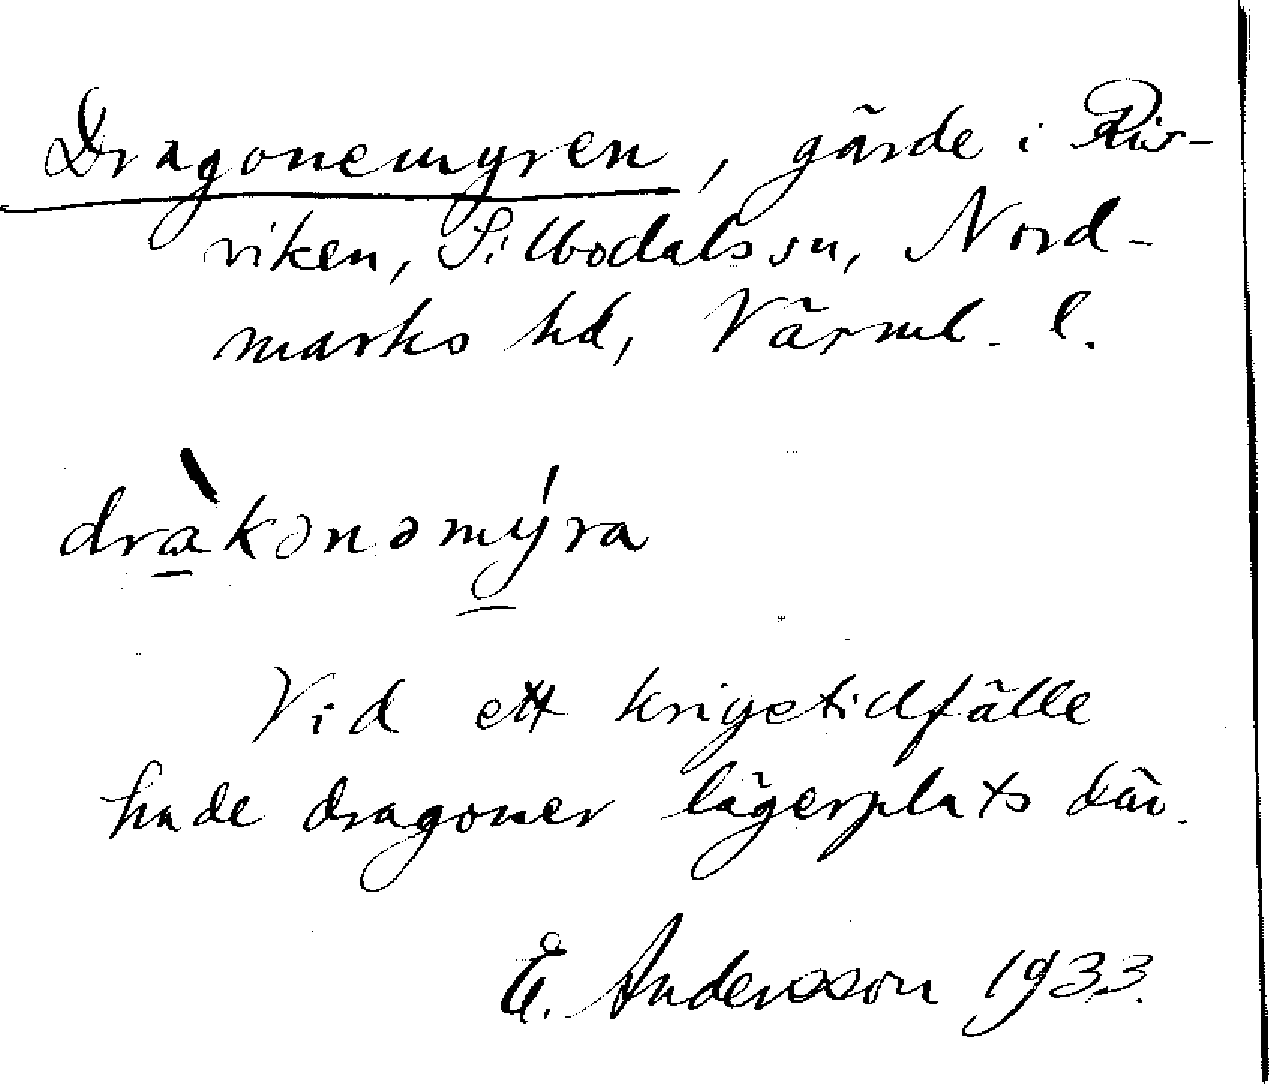 Dragonemyren, gärde i Rör-
viken, Silbodals sn, Nord-
marks hd, Värml. l.
dràkənəmýra
Vid ett krigstidfälle
hade dragoner lägerplats där.
E. Andersson 1933.